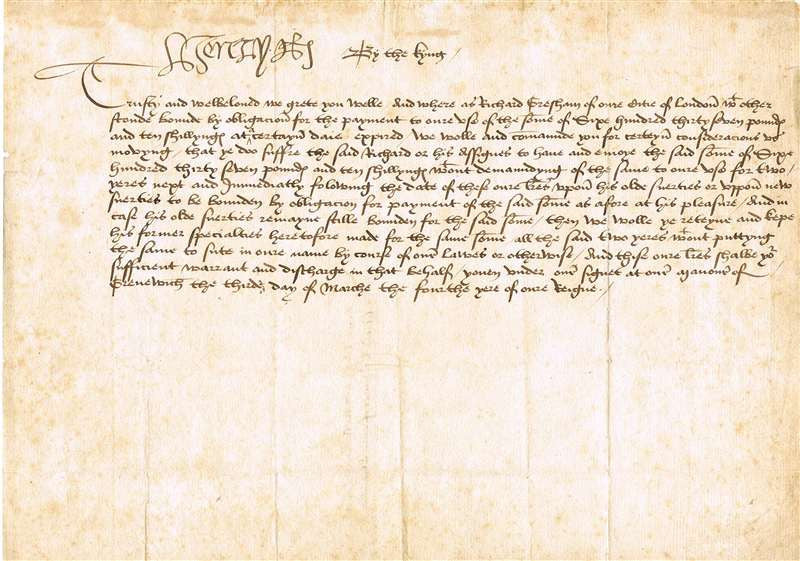 Henry R By the kyng
Trusty and welbeloved we grete you welle / And where as Richard Gresham of oure Citie of London wt other
stonde bounde by obligacion for the payment to oure use of the some of Sixe hundred thirty seven pound
and ten shillyngs at certayn daies expired We wolle and commaunde you for certeyn consideracions us
movyng / that ye doo suffre the said Richard or his Assignes to have and enioye the said some of Sixe
hundred thirty seven pound and ten shillyngs wtout demaundyng of the same to oure use for two
yeres next and Immediatly folowing the date of these oure lres upon his olde suerties or uppon new
suerties to be bounden by obligacion for payment of the said some as afore at his pleasure / And in
case his olde suerties remayne stille bounden for the said some / then we wolle ye reteyne and kepe
his former specialties heretofore made for the same some all the said two yeres wtout puttyng
the same to sute in oure name by course of our lawes or otherwise / And thise oure lres shalbe yor
sufficient warrant and discharge in that behalf / yoven under our signet at our manour of
Grenewich the thirde day of Marche the fourthe yere of oure Reigne /